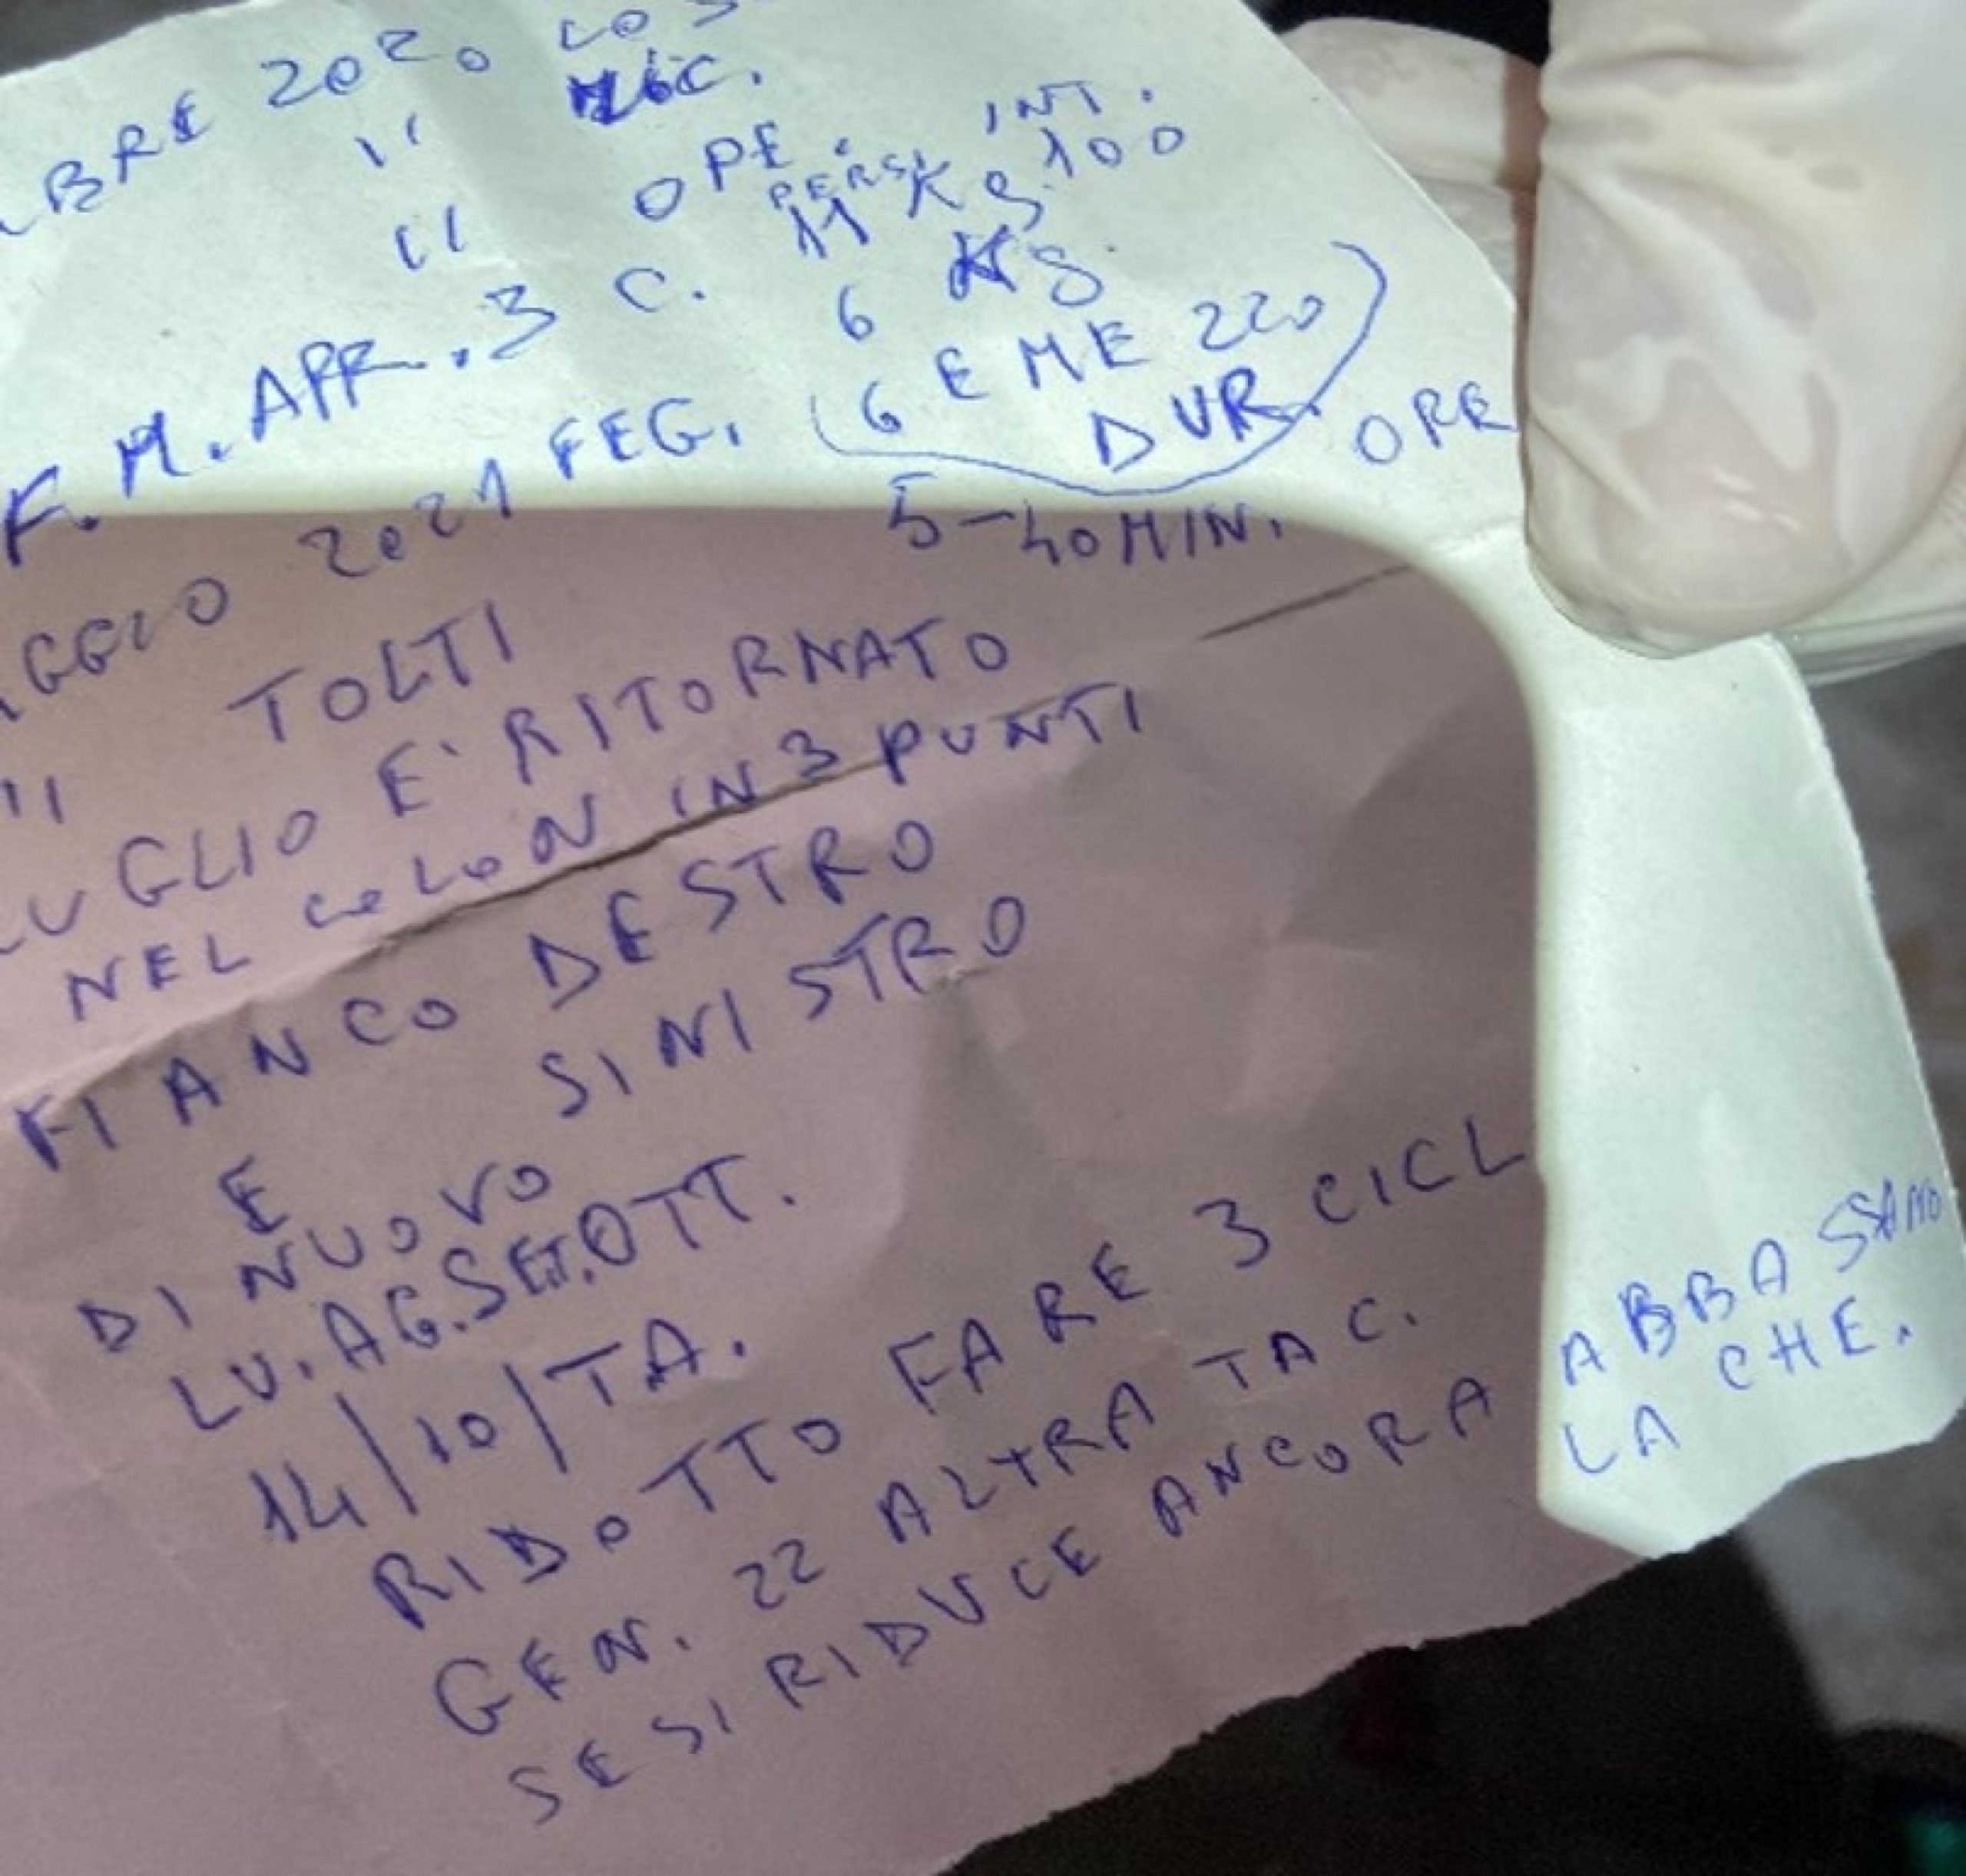 BRE 2020
" MIC.
" OPE. INT.
PERSI 11 Kg. 100
F. M. APR. 3 C. 6 Kg
GGIO 2021 FEG. (6 EME 220)
DUR. ORE
5-40 MIN.
" TOLTI
LUGLIO E' RITORNATO
NEL COLON IN 3 PUNTI
FIANCO DESTRO
E SINISTRO
DI NUOVO
LU. AG. SET. OTT.
14/10/TA.
RIDOTTO FARE 3 CICL
GEN. 22 ALTRA TAC.
SE SI RIDUCE ANCORA
ABBASSANO
LA CHE.